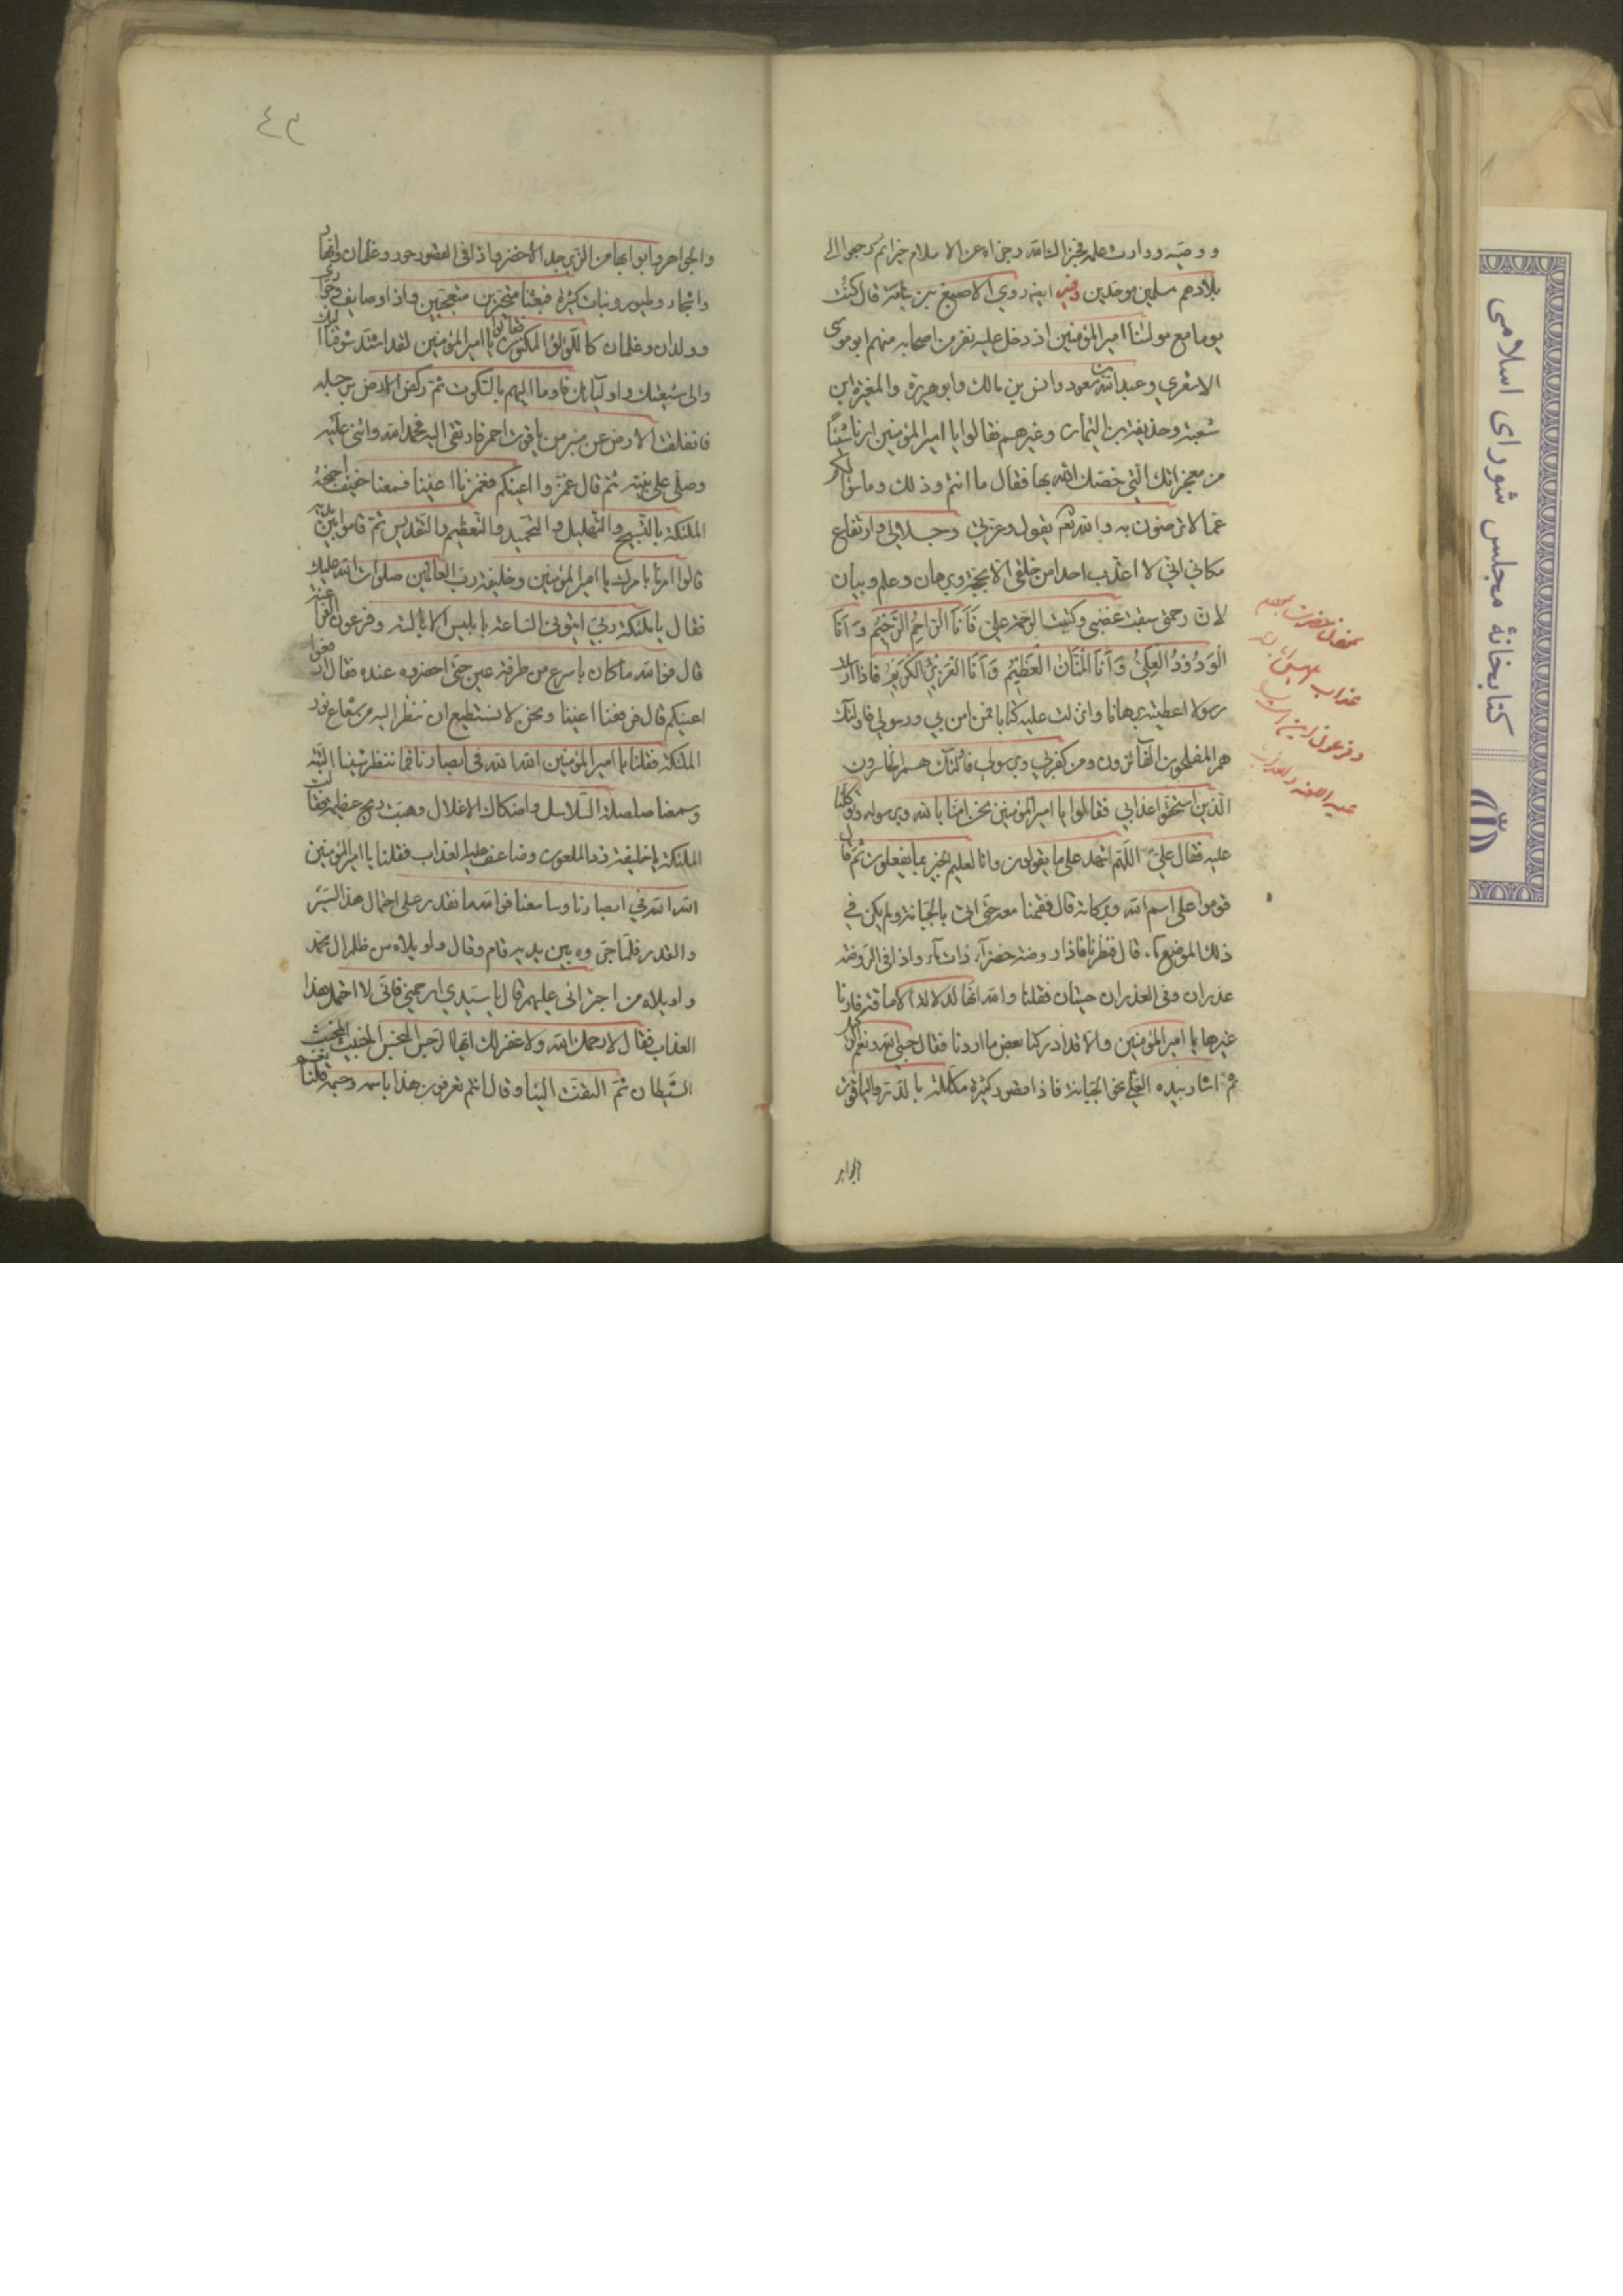 ووصيه ووارث علمه فجزاك الله وجزاه عن الاسلام خيرا ثم رجعوا الى
بلادهم مسلمين موحدين وفيه ايضه روي الاصبغ بن نباته قال كنت
يوما مع مولٰنا امير المؤمنين اذ دخل عليه نفر من اصحابه منهم ابو موسى
الاشعري وعبد الله بن مسعود وانس بن مالك وابو هريرة والمغيرة ابن
شعبة وحذيفة بن اليمان وغيرهم فقالوا يا امير المؤمنين ارنا شيئا
من معجزاتك التي خصّك الله بها فقال ما انتم وذلك وما سؤالكم
عما لا ترضون به والله تعالى يقول وعزتي وجلالي وارتفاع
مكاني اني لا اعذب احدا من خلقي الا بحجة وبرهان وعلم وبيان
لان رحمتي سبقت غضبي وكتبت الرحمة علي فَاَنَا الراحم الرَّحِيمُ وَاَنَا
الْوَدُودُ الْعَلِيُّ وَاَنَا الْمَنَّانُ الْعَظِيمُ وَاَنَا الْعَزِيزُ الْكَرِيمُ فاذا ارسلت
رسولا اعطيته برهانا وانزلت عليه كتابا فمن امن بي ورسولي فاولئك
هم المفلحون الفائزون ومن كفر بي وبرسولي فاولئك هم الخاسرون
الذين استحقوا عذابي فقالوا يا امير المؤمنين نحن امنّا بالله وبرسوله وتوكلنا
عليه فقال علي اللّهم اشهد على ما يقولون وانا لعليم الخبير بما يفعلون ثم قال
قوموا على اسم الله وبركاته قال فقمنا معه حتى اتى بالجبانة ولم يكن في
ذلك الموضع ماء قال فنظرنا فاذا روضة خضرآء ذات ماء واذا في الروضة
غدران وفي الغدران حيتان فقلنا والله انها لدلالة الامامة فارنا
غيرها يا امير المؤمنين والا قد ادركنا بعض ما اردنا فقال حسبي الله ونعم الوكيل
ثم اشار بيده العليا نحو الجبانة فاذا قصور كثيرة مكللة بالدر والياقوت
الجواهر
عذاب
وفرعون
٤٣
والجواهر وابوابها من الزبرجد الاخضر واذا في القصور حور وغلمان وانهار
واشجار وطيور ونبات كثيرة فبقينا متحيرين متعجبين واذا وصايف وجوار
وولدان وغلمان كاللؤلؤ المكنون فقالوا يا امير المؤمنين لقد اشتد شوقنا اليك
والى شيعتك واوليائك فاوما اليهم بالسكوت ثم ركض الارض برجله
فانفلقت الارض عن منبر من ياقوت احمر فارتقى اليه فحمد الله واثنى عليه
وصلى على نبيه ثم قال غمّضوا اعينكم فغمزنا اعيننا فسمعنا حفيف اجنحة
الملئكة بالتسبيح والتهليل والتحميد والتعظيم والتقديس ثم قاموا بين يديه
قالوا امرنا بامرك يا امير المؤمنين وخليفة رب العالمين صلوات الله عليك
فقال يا ملئكة ربي ائتوني الساعة بابليس الابالسة وفرعون الفراعنة
قال فوالله ما كان باسرع من طرفة عين حتى احضروه عنده فقال ارفعوا
اعينكم قال فرفعنا اعيننا ونحن لا نستطيع ان ننظر اليه من شعاع نور
الملئكة فقلنا يا امير المؤمنين الله الله في ابصارنا فما ننظر شيئا البتة
وسمعنا صلصلة السلاسل واصكاك الاغلال وهبت ريح عظيمة فقالت
الملئكة يا خليفة زد الملعون وضاعف عليه العذاب فقلنا يا امير المؤمنين
الله الله في ابصارنا ومسامعنا فوالله ما نقدر على احتمال هذا السر
والقدر فلما جروه بين يديه قام وقال واويلاه من ظلم ال محمد
واويلاه من اجترائي عليهم قال يا سيدي ارحمني فاني لا احتمل هذا
العذاب فقال لا رحمك الله ولا غفر لك ايها الرجس النجس الخبيث المخبث
الشيطان ثم التفت الينا وقال انتم تعرفون هذا باسمه وجسمه قلنا نعم
كتابخانهٔ مجلس شورای اسلامی